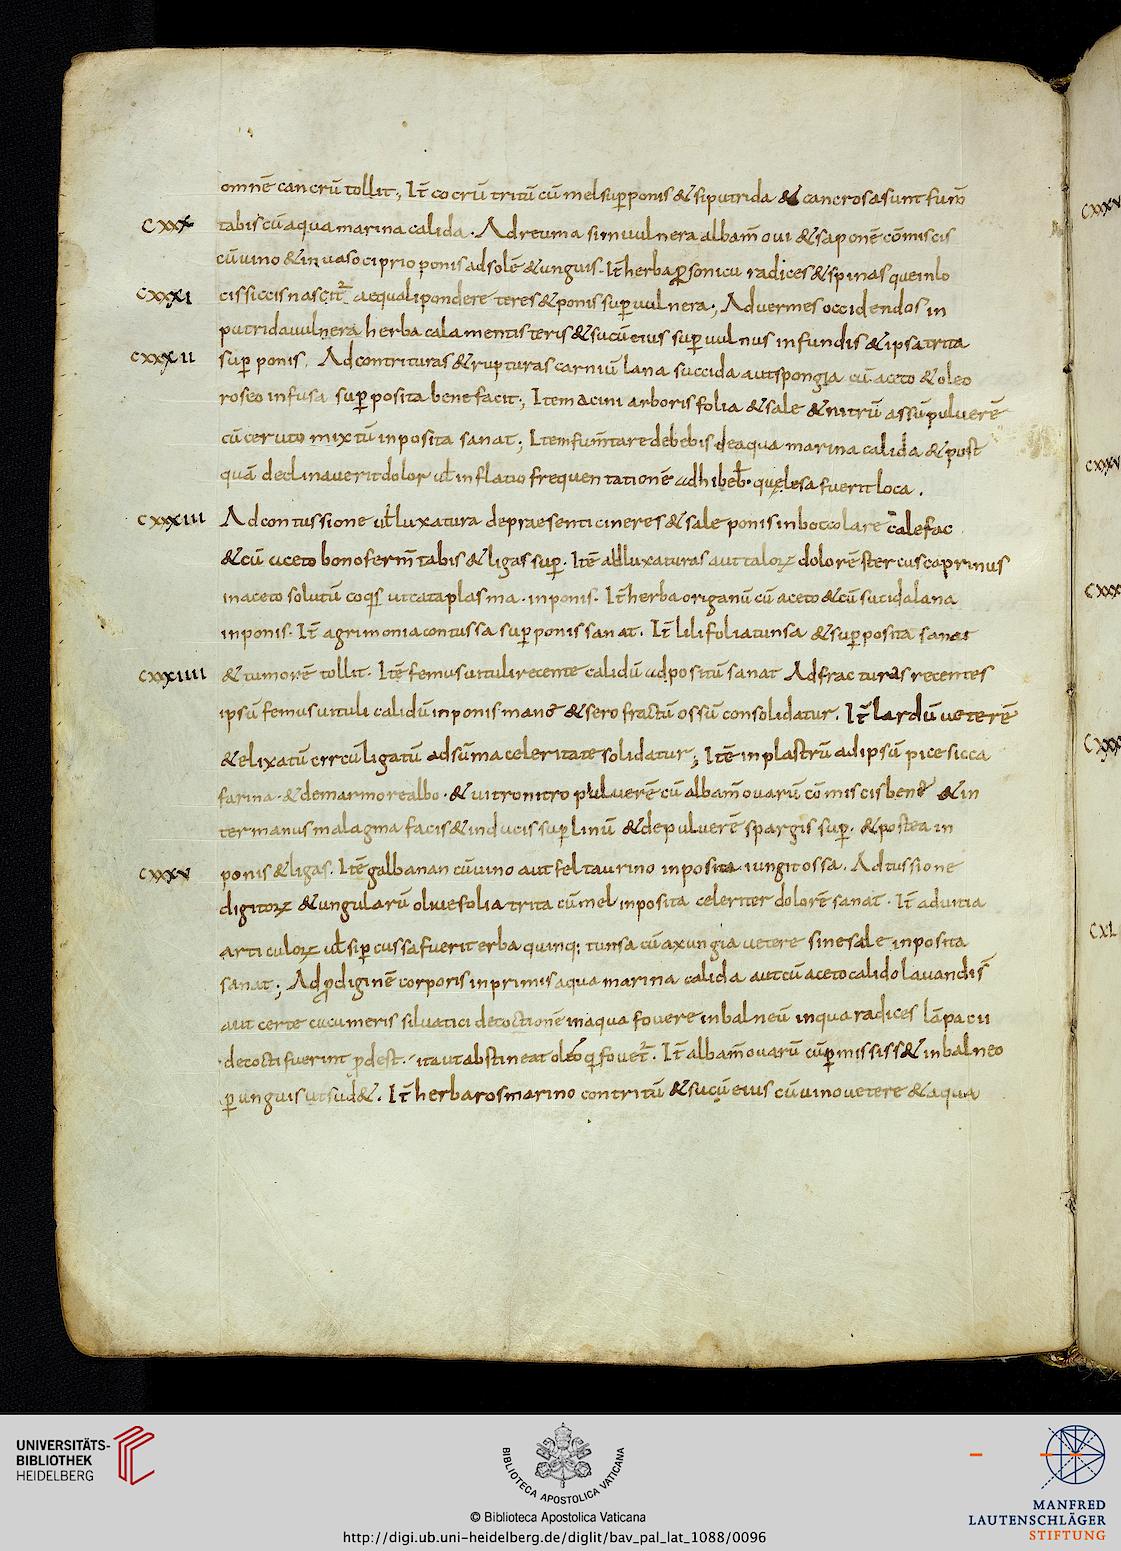 omnē cancrū tollit; It̄ cocrū tritū cū mel sup ponis & si putrida & cancrosa sunt fum̄
CXXX tabis cū aqua marina calida. Ad reuma si in vulnera albam̄ oui & saponē cōmiscis
cū uino & in uaso ciprio ponis ad solē & unguis. It̄ herba ꝑsonicu radices & spinas que in lo
CXXXI cis siccis nascit̄ aequali pondere teres & ponis sup uulnera; Ad uermes occidendos in
putrida uulnera herba calamentis teris & sucū eius sup uulnus infundis & ipsa trita
CXXXII sup ponis. Ad contrituras & rupturas carniū lana succida aut spongia cū aceto & oleo
roseo infusa sup posita bene facit; Item acini arboris folia & sale & nitrū assū puluerē
cū ceruto mixtū inposita sanat; Item fum̄tare debebis de aqua marina calida & post
quā declinauerit dolor ul̄ inflatio frequentationē adhibeb̄. que lesa fuerit loca.
CXXXIII Ad contussione ul̄ luxatura de praesenti cineres & sale ponis in boccolare calefac
& cū aceto bono ferm̄tabis & ligas sup. Itē ad luxaturas aut taloꝝ dolorē stercus caprinus
in aceto solutū coqs̄ ut cataplasma inponis. It̄ herba origanū cū aceto & cū sucida lana
inponis. It̄ agrimonia contussa sup ponis sanat. It̄ lili folia tunsa & sup posita sanat
CXXXIIII & tumorē tollit. Itē femus uituli recente calidū adpositū sanat Ad fracturas recentes
ipsū femus uituli calidū inponis manē & sero fractū ossū consolidatur. It̄ lardū ueterē
& elixatū circūligatū ad sūma celeritate solidatur; Itē inplastrū ad ipsū pice sicca
farina & de marmore albo & uitro nitro puluerē cū albam̄ ouarū cōmiscis benē & in
ter manus malagma facis & inducis sup linū & de puluerē spargis sup. & postea in
CXXXV ponis & ligas. Itē galbanan cū uino aut fel taurino inposita iungit ossa. Ad tussione
digitoꝝ & ungularū oliue folia trita cū mel inposita celeriter dolorē sanat. It̄ ad uitia
articuloꝝ ul̄ si percussa fuerit erba quinq; tunsa cū axungia uetere sine sale inposita
sanat; Ad ꝓdiginē corporis inprimis aqua marina calida aut cū aceto calido lauandis̄
aut certe cucumeris siluatici decoctionē in aqua fouere in balneū in qua radices lāpacii
decocti fuerint ꝓdest. ita ut abstineat oleo q̄ fouet̄. It̄ albam̄ ouarū cū ꝑmississ & in balneo
ꝑunguis ut sud&. It̄ herba rosmarino contritū & sucū eius cū uino uetere & aqua
CXL
UNIVERSITÄTS-
BIBLIOTHEK
HEIDELBERG
BIBLIOTECA APOSTOLICA VATICANA
© Biblioteca Apostolica Vaticana
http://digi.ub.uni-heidelberg.de/diglit/bav_pal_lat_1088/0096
MANFRED
LAUTENSCHLÄGER
STIFTUNG